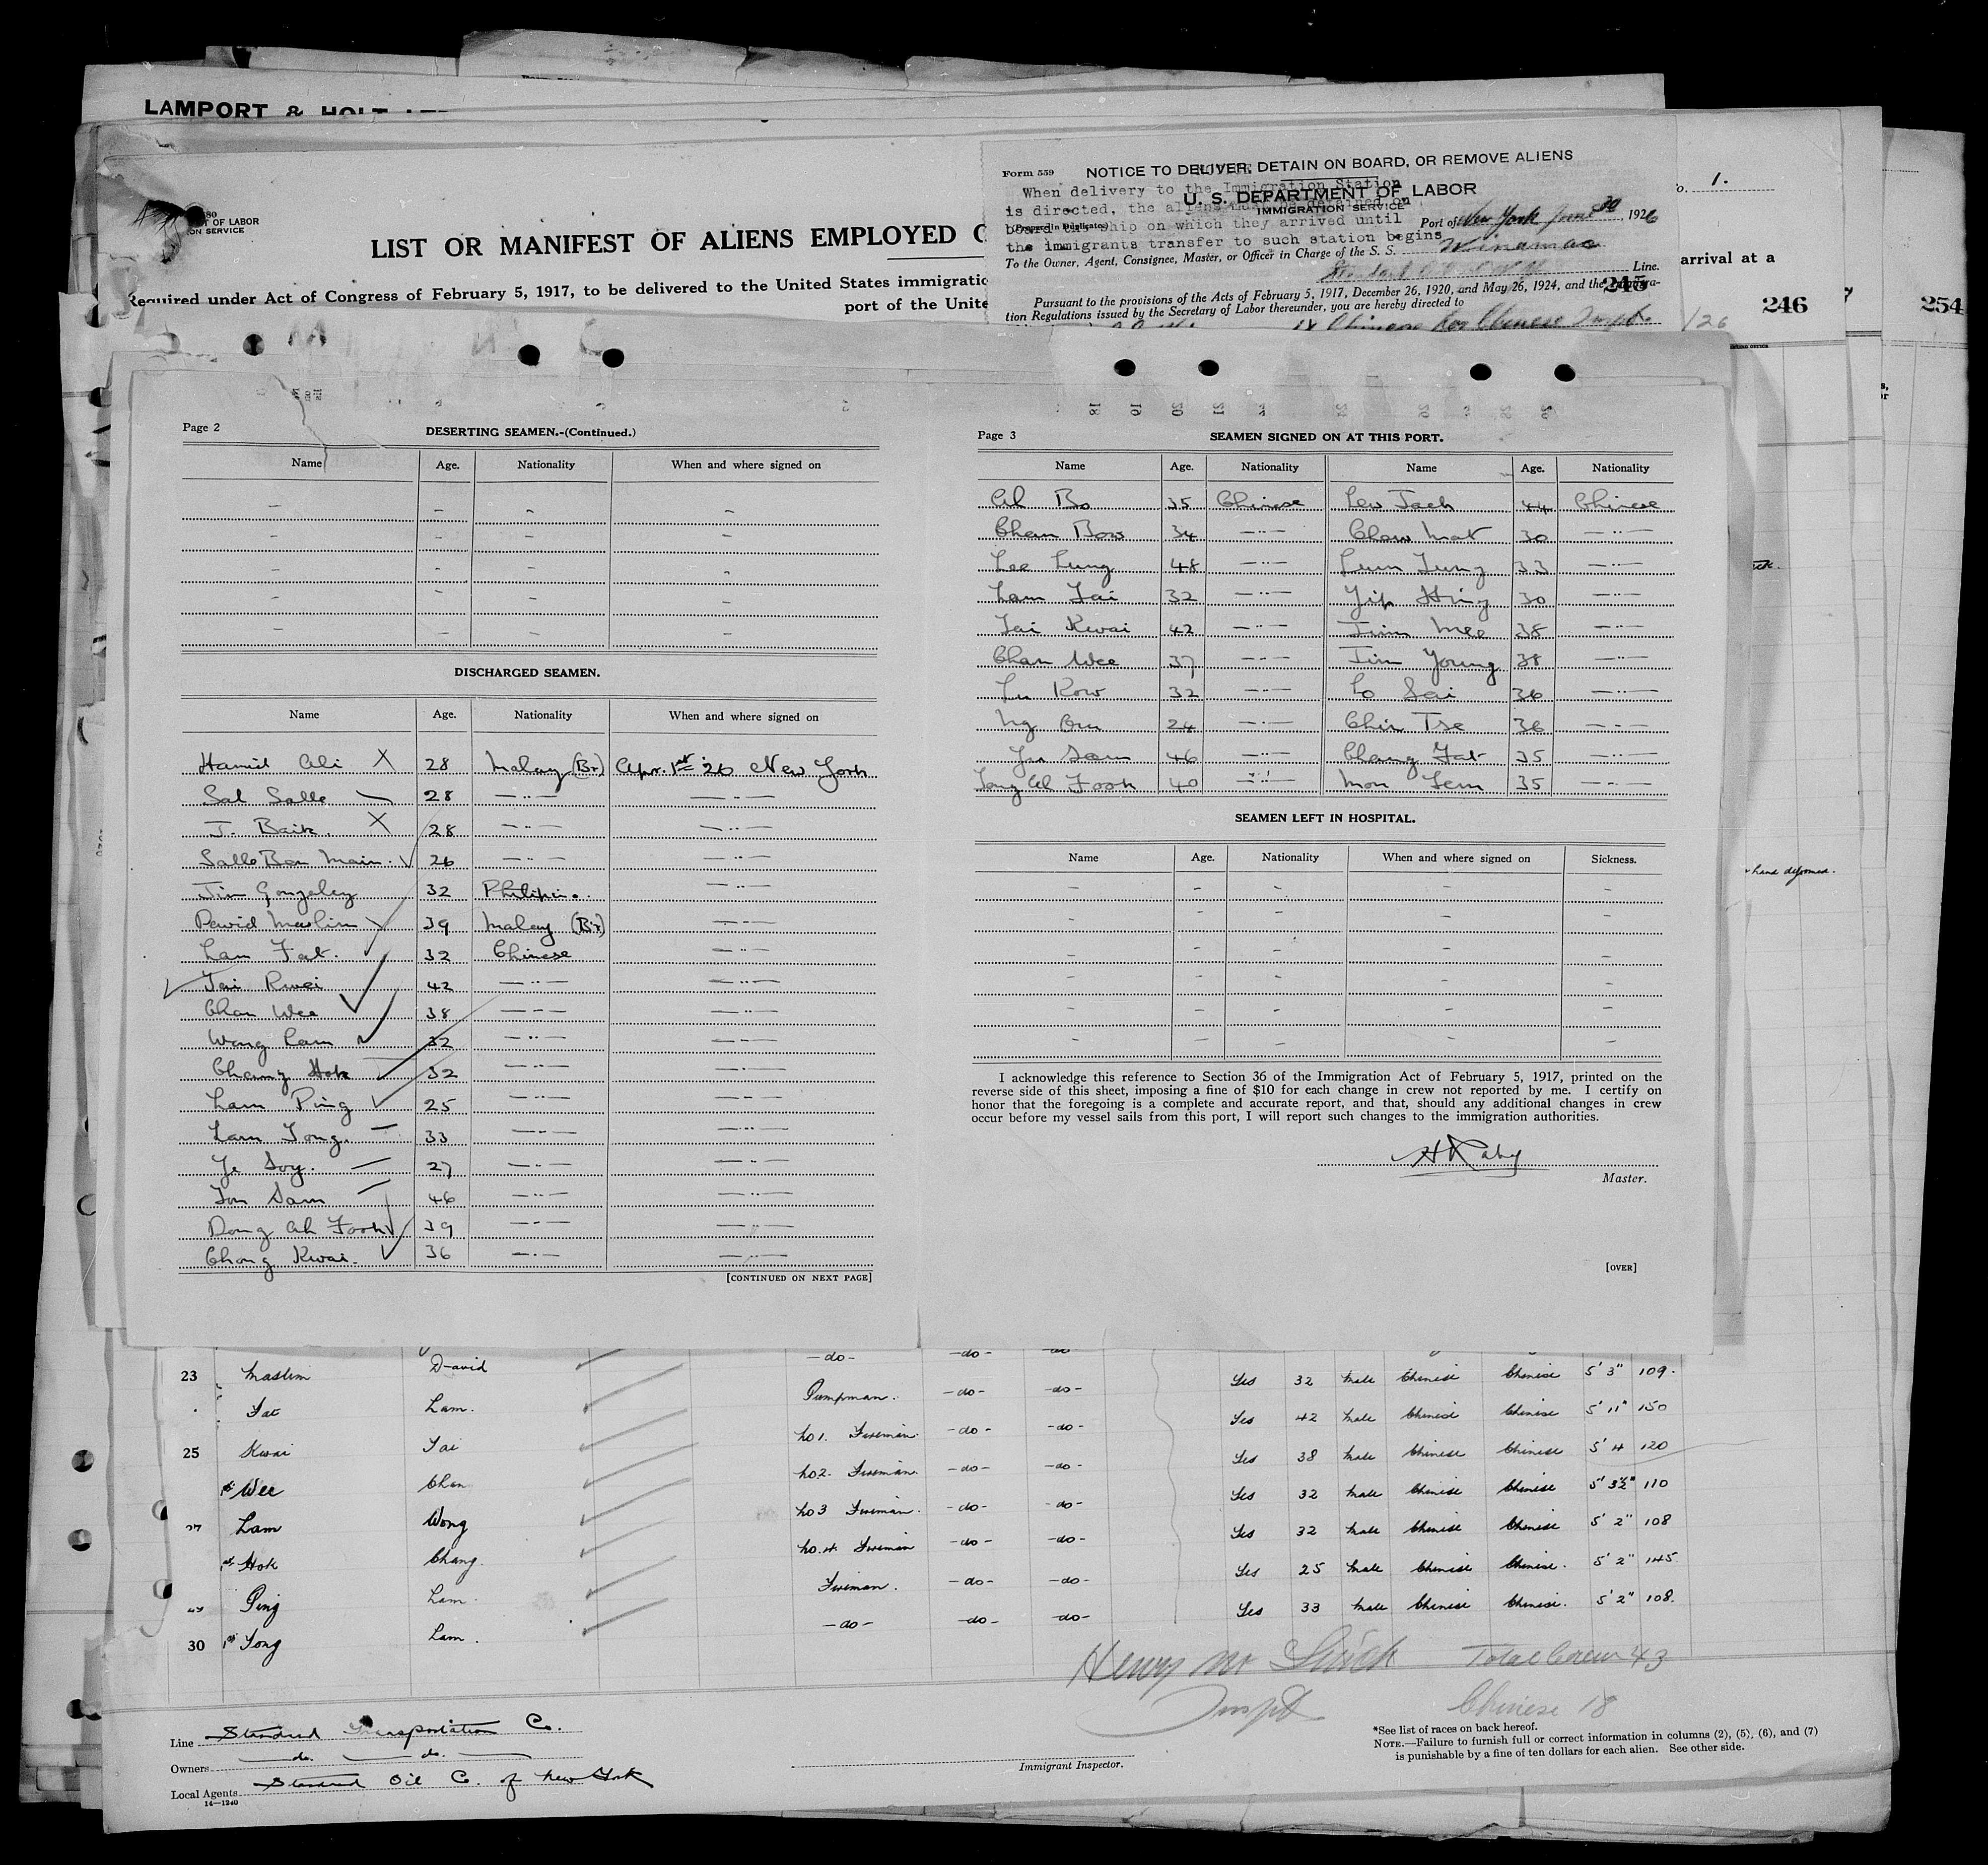 LAMPORT & HOLT
LIST OR MANIFEST OF ALIENS EMPLOYED
Required under Act of Congress of February 5, 1917, to be delivered to the United States immigratio
port of the Unite
Form 559
NOTICE TO DELIVER, DETAIN ON BOARD, OR REMOVE ALIENS
When delivery to the Immigration Station
is directed, the aliens must be detained on
board the ship on which they arrived until
the immigrants transfer to such station begins
U. S. DEPARTMENT OF LABOR
IMMIGRATION SERVICE
(Prepare in Duplicate)
Port of New York June 30, 1926
To the Owner, Agent, Consignee, Master, or Officer in Charge of the S. S. Winamac
Line.
Pursuant to the provisions of the Acts of February 5, 1917, December 26, 1920, and May 26, 1924, and the Immigra-
tion Regulations issued by the Secretary of Labor thereunder, you are hereby directed to
Chinese for Chinese Inspt
245
1.
arrival at a
246
/26
254
Page 2
DESERTING SEAMEN.-(Continued.)
Name Age. Nationality When and where signed on
DISCHARGED SEAMEN.
Name Age. Nationality When and where signed on
Hamid Ali X 28 Malay (Br) Apr. 1st 26 New York
Sal Salle 28 —"— —"—
J. Baik. X 28 —"— —"—
Salle Bon Main. 26 —"— —"—
Jim Gonzaley 32 Philipin. —"—
David Maslim 39 Malay (Br) —"—
Lam Fat. 32 Chinese —"—
Tai Kwai 42 —"— —"—
Chan Wee 38 —"— —"—
Wong Lam 32 —"— —"—
Chang Hok 32 —"— —"—
Lam Ping 25 —"— —"—
Lam Tong. 33 —"— —"—
Ye Soy. 27 —"— —"—
Yon Sam 46 —"— —"—
Dong Ah Fook 39 —"— —"—
Chong Kwai. 36 —"— —"—
[CONTINUED ON NEXT PAGE]
Page 3
SEAMEN SIGNED ON AT THIS PORT.
Name Age. Nationality Name Age. Nationality
Ah Bo 35 Chinese Lew Jack 44 Chinese
Chan Bow 34 —"— Chow Mat 30 —"—
Lee Lung 48 —"— Lum Tung 33 —"—
Lam Tai 32 —"— Yip Hing 30 —"—
Tai Kwai 42 —"— Jim Mee 38 —"—
Chan Wee 37 —"— Jim Young 38 —"—
Lu Kow 32 —"— Lo Sai 36 —"—
Ng Om 24 —"— Chin Tse 36 —"—
Yon Sam 46 —"— Chang Fat 35 —"—
Tong Ah Fook 40 —"— Mon Lem 35 —"—
SEAMEN LEFT IN HOSPITAL.
Name Age. Nationality When and where signed on Sickness.
I acknowledge this reference to Section 36 of the Immigration Act of February 5, 1917, printed on the
reverse side of this sheet, imposing a fine of $10 for each change in crew not reported by me. I certify on
honor that the foregoing is a complete and accurate report, and that, should any additional changes in crew
occur before my vessel sails from this port, I will report such changes to the immigration authorities.
Master.
[OVER]
hand deformed.
23 Maslim David -do- -do- -do-
Fat Lam. Pumpman. -do- -do- Yes 32 Male Chinese Chinese 5' 3" 109.
25 Kwai Tai No 1. Fireman. -do- -do- Yes 42 Male Chinese Chinese 5' 11" 150
Wee Chan No 2. Fireman. -do- -do- Yes 38 Male Chinese Chinese 5' 4 120
27 Lam Wong No 3 Fireman. -do- -do- Yes 32 Male Chinese Chinese 5' 3½" 110
Hok Chang. No. 4 Fireman -do- -do- Yes 32 Male Chinese Chinese 5' 2" 108
Ping Lam. Fireman. -do- -do- Yes 25 Male Chinese Chinese. 5' 2" 145
30 Tong Lam. -do- -do- -do- Yes 33 Male Chinese Chinese. 5' 2" 108.
Total Crew 43
Inspt
Chinese 18
Line Standard Transportation Co.
Owners do. do.
Local Agents Standard Oil Co. of New York
14—1240
Immigrant Inspector.
*See list of races on back hereof.
NOTE.—Failure to furnish full or correct information in columns (2), (5), (6), and (7)
is punishable by a fine of ten dollars for each alien. See other side.